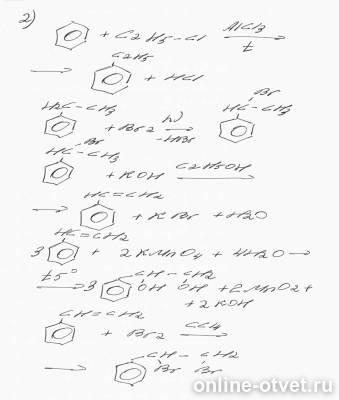 2)
+ C2H5-Cl AlCl3
t
C2H5
+ HCl
H2C-CH3
Br
HC-CH3
+ Br2 hν
-HBr
Br
HC-CH3
+ KOH C2H5OH
HC=CH2
+ KBr + H2O
HC=CH2
3 + 2KMnO4 + 4H2O →
t5°
3 CH-CH2
OH OH + 2MnO2 +
+ 2KOH
CH=CH2
+ Br2 CCl4
CH-CH2
Br Br
online-otvet.ru